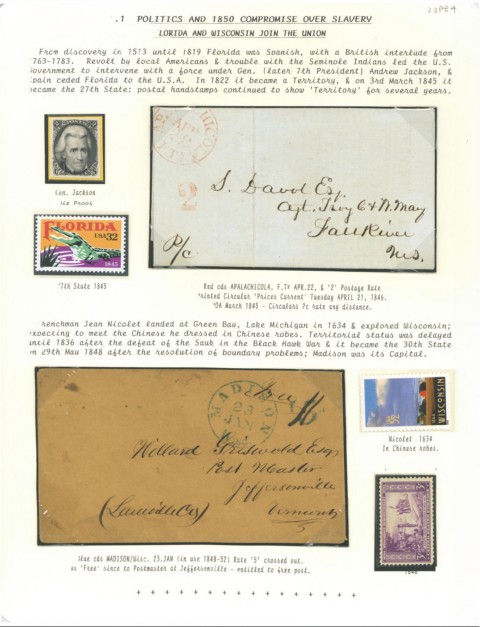 .1 POLITICS AND 1850 COMPROMISE OVER SLAVERY
LORIDA AND WISCONSIN JOIN THE UNION
From discovery in 1513 until 1819 Florida was Spanish, with a British interlude from
763-1783. Revolt by local Americans & trouble with the Seminole Indians led the U.S.
overnment to intervene with a force under Gen. (later 7th President) Andrew Jackson, &
pain ceded Florida to the U.S.A. In 1822 it became a Territory, & on 3rd March 1845 it
became the 27th State; postal handstamps continued to show 'Territory' for several years.
Gen. Jackson
ie Proof
FLORIDA
USA 32
1845
7th State 1845
APR
22
2
S. David Esq.
Agt. Troy C & W. May
Fall River
Ms.
P/c
Red cds APALACHICOLA. F.Ty APR.22, & '2' Postage Rate
rinted Circular 'Prices Current' Tuesday April 21, 1846.
'DA March 1845 - Circulars 2c rate any distance.
renchman Jean Nicolet landed at Green Bay, Lake Michigan in 1634 & explored Wisconsin;
xpecting to meet the Chinese he dressed in Chinese robes. Territorial status was delayed
until 1836 after the defeat of the Sauk in the Black Hawk War & it became the 30th State
n 29th May 1848 after the resolution of boundary problems; Madison was its Capital.
MADISON
23
JAN
Free
Willard Griswold Esq
Post Master
Jeffersonville
Vermont
(Lamoille Co)
WISCONSIN
Nicolet 1634
In Chinese robes.
lue cds MADISON/Wisc. 23.JAN (in use 1848-52) Rate '5' crossed out.
s 'Free' since to Postmaster at Jeffersonville - entitled to free post.
+ + + + + + + + + + + + + + + +